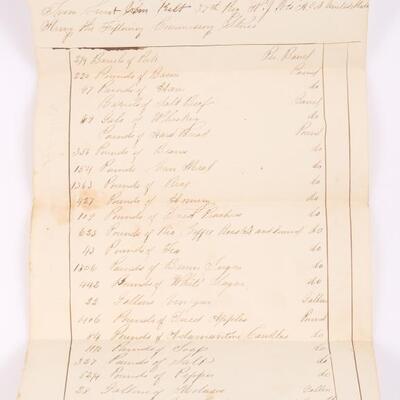 John Pitt 37th Reg
Army the following Commissary Stores
214 Barrels of Pork Per Barrel
220 Pounds of Bacon Pound
97 Pounds of Ham do
Barrels of Salt Beef Barrel
69 Gals of Whiskey
Pounds of Hard Bread Pound
356 Pounds of Beans do
154 Pounds Corn Meal do
1363 Pounds of Rice do
427 Pounds of Hominy do
102 Pounds of Dried Peaches do
623 Pounds of Rio Coffee Roasted and Ground do
43 Pounds of Tea do
1306 Pounds of Brown Sugar do
442 Pounds of White Sugar do
22 Gallons Vinegar Gallon
Pounds of Dried Apples Pound
Pounds of Adamantine Candles do
Pounds of Soap do
327 Pounds of Salt do
Pounds of Pepper do
28 Gallons of Molasses Gallon